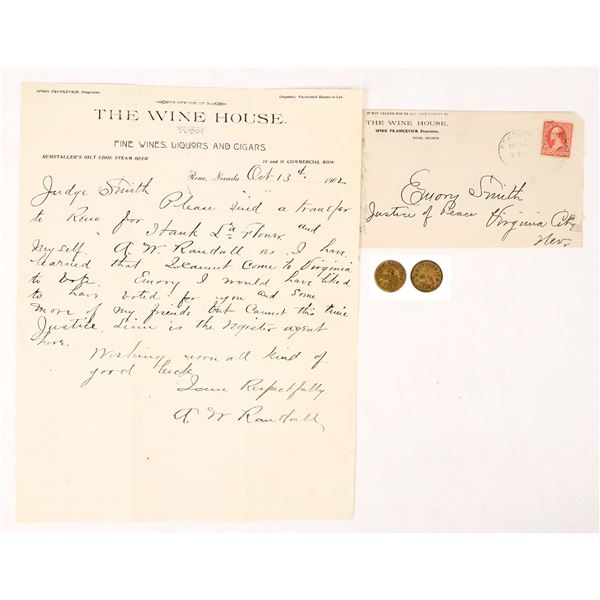 OFFICE OF
SPIRO FRANCEVICH, Proprietor.
Elegantly Furnished Rooms to Let.
THE WINE HOUSE.
FINE WINES, LIQUORS AND CIGARS.
RUHSTALLER'S GILT EDGE STEAM BEER.
14 and 16 COMMERCIAL ROW
Reno, Nevada Oct 13th 1902
Judge Smith
Please send a transfer
to Reno for
Hank La Flower and
Myself, A. W. Randall as I have
learned that I cannot come to Virginia
to Vote. Emory I would have liked
to have voted for you and some
more of my friends but cannot this time
Justice Linn is the register agent
here.
Wishing you all kind of
good luck
I am Respectfully
A. W Randall
IF NOT CALLED FOR IN
THE WINE HOUSE,
SPIRO FRANCEVICH, Proprietor.
RENO, NEVADA
Emory Smith
Justice of Peace Virginia City
Nev.